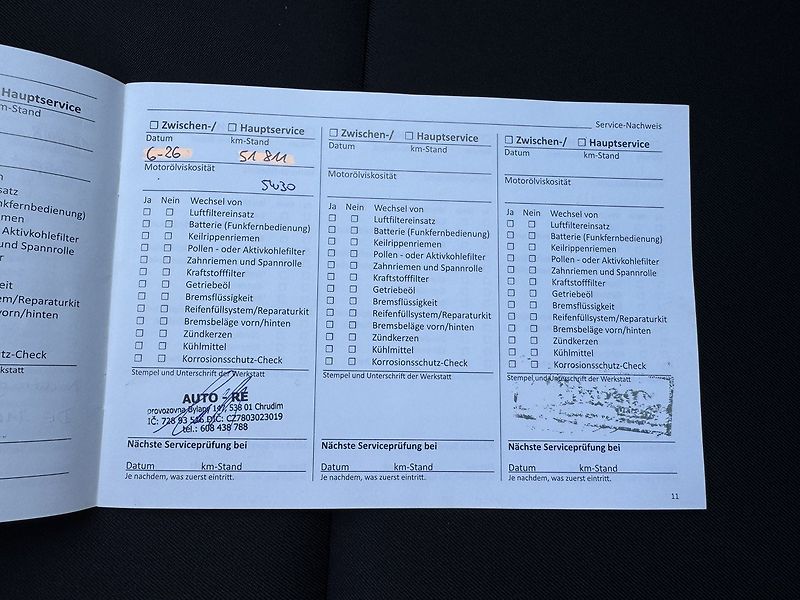 Hauptservice
m-Stand
satz
nkfernbedienung)
iemen
Aktivkohlefilter
und Spannrolle
r
keit
tem/Reparaturkit
vorn/hinten
utz-Check
rkstatt
Service-Nachweis
☐ Zwischen-/ ☐ Hauptservice
Datum km-Stand
6-26 51 811
Motorölviskosität
5W30
Ja Nein Wechsel von
☐ ☐ Luftfiltereinsatz
☐ ☐ Batterie (Funkfernbedienung)
☐ ☐ Keilrippenriemen
☐ ☐ Pollen - oder Aktivkohlefilter
☐ ☐ Zahnriemen und Spannrolle
☐ ☐ Kraftstofffilter
☐ ☐ Getriebeöl
☐ ☐ Bremsflüssigkeit
☐ ☐ Reifenfüllsystem/Reparaturkit
☐ ☐ Bremsbeläge vorn/hinten
☐ ☐ Zündkerzen
☐ ☐ Kühlmittel
☐ ☐ Korrosionsschutz-Check
Stempel und Unterschrift der Werkstatt
AUTO RE
provozovna Bylany 147, 538 01 Chrudim
IČ: 728 93 DIČ: CZ7803023019
tel.: 608 438 788
Nächste Serviceprüfung bei
Datum km-Stand
Je nachdem, was zuerst eintritt.
☐ Zwischen-/ ☐ Hauptservice
Datum km-Stand
Motorölviskosität
Ja Nein Wechsel von
☐ ☐ Luftfiltereinsatz
☐ ☐ Batterie (Funkfernbedienung)
☐ ☐ Keilrippenriemen
☐ ☐ Pollen - oder Aktivkohlefilter
☐ ☐ Zahnriemen und Spannrolle
☐ ☐ Kraftstofffilter
☐ ☐ Getriebeöl
☐ ☐ Bremsflüssigkeit
☐ ☐ Reifenfüllsystem/Reparaturkit
☐ ☐ Bremsbeläge vorn/hinten
☐ ☐ Zündkerzen
☐ ☐ Kühlmittel
☐ ☐ Korrosionsschutz-Check
Stempel und Unterschrift der Werkstatt
Nächste Serviceprüfung bei
Datum km-Stand
Je nachdem, was zuerst eintritt.
☐ Zwischen-/ ☐ Hauptservice
Datum km-Stand
Motorölviskosität
Ja Nein Wechsel von
☐ ☐ Luftfiltereinsatz
☐ ☐ Batterie (Funkfernbedienung)
☐ ☐ Keilrippenriemen
☐ ☐ Pollen - oder Aktivkohlefilter
☐ ☐ Zahnriemen und Spannrolle
☐ ☐ Kraftstofffilter
☐ ☐ Getriebeöl
☐ ☐ Bremsflüssigkeit
☐ ☐ Reifenfüllsystem/Reparaturkit
☐ ☐ Bremsbeläge vorn/hinten
☐ ☐ Zündkerzen
☐ ☐ Kühlmittel
☐ ☐ Korrosionsschutz-Check
Stempel und Unterschrift der Werkstatt
Nächste Serviceprüfung bei
Datum km-Stand
Je nachdem, was zuerst eintritt.
11